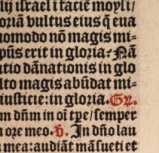 lij israel i facie moysi/
oriã vultus eius q̃ eua
omodo nõ magis mi-
pũs erit in gloria: Nã
atio dãnationis in glo
lto magis abũdat mi-
iusticie: in gloria. Gr.
m dñm in oi tpe/ semper
n ore meo. ℣. In dño lau
mea: audiãt mãsueti et